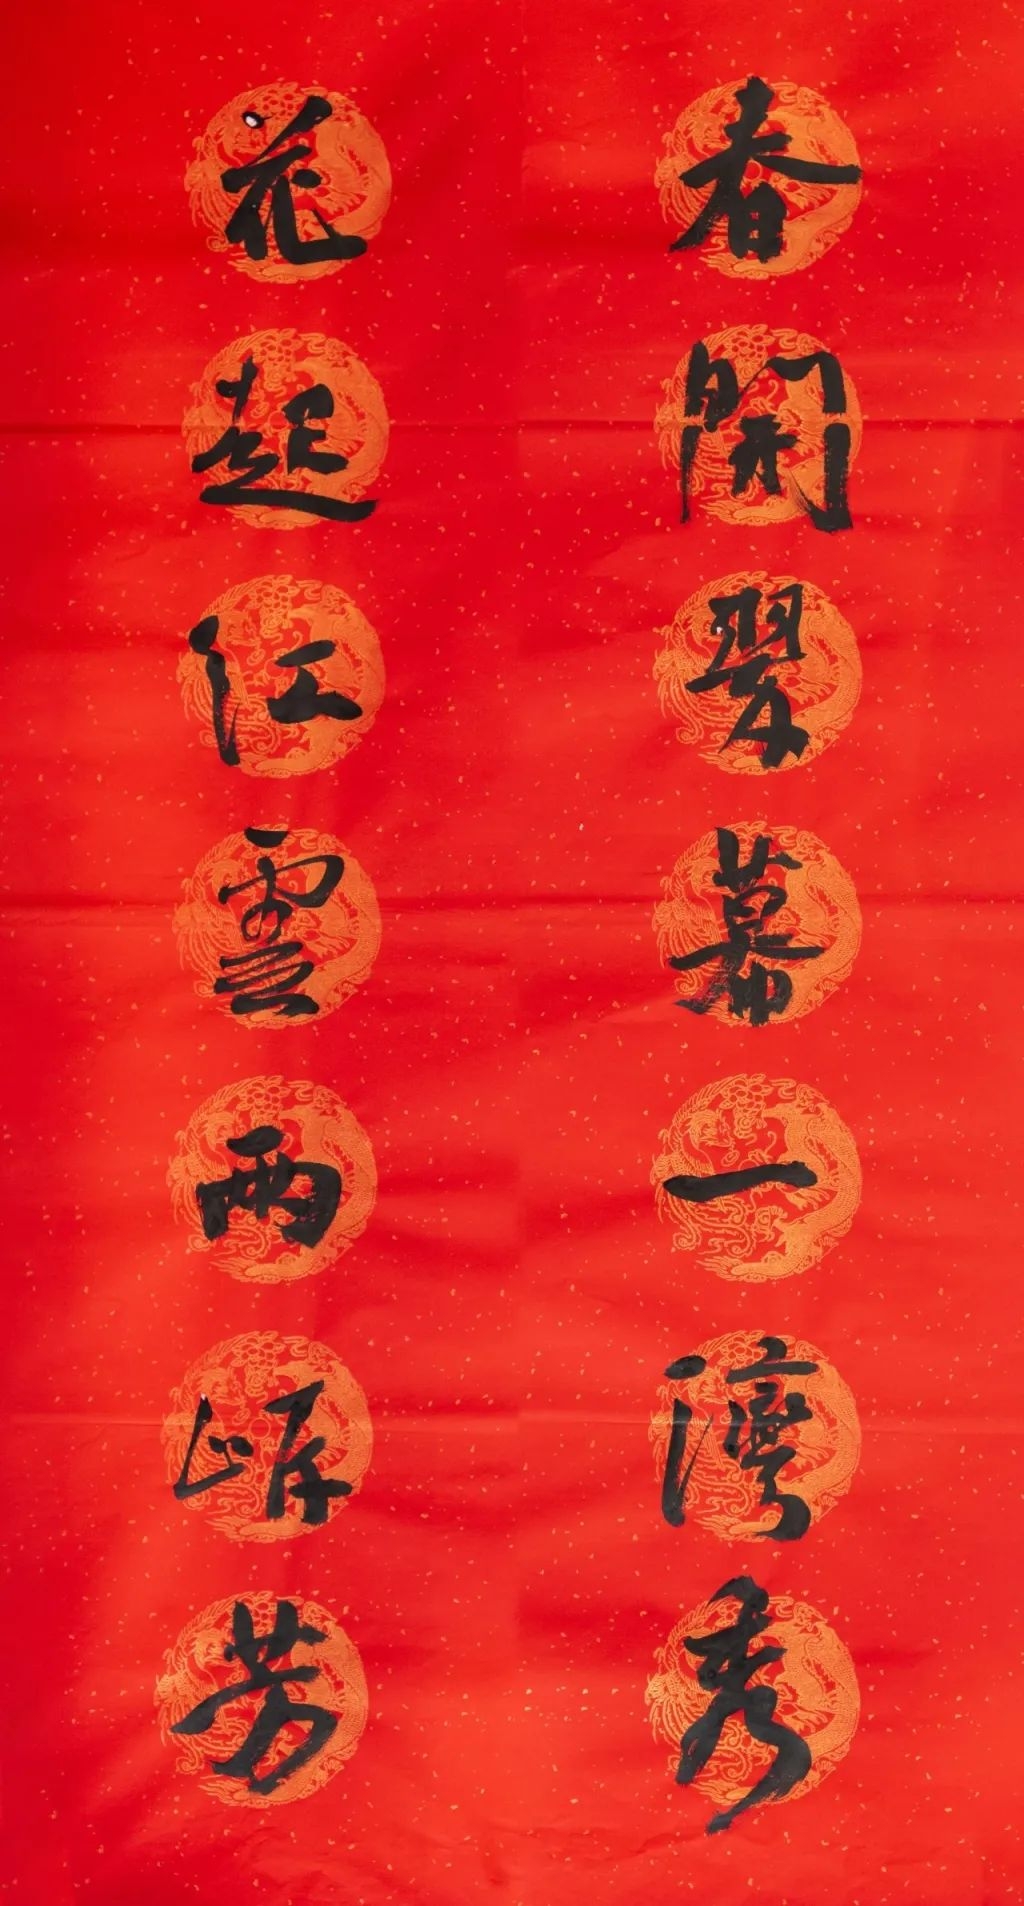 春開翠幕一灣秀
花起紅雲兩岸芳